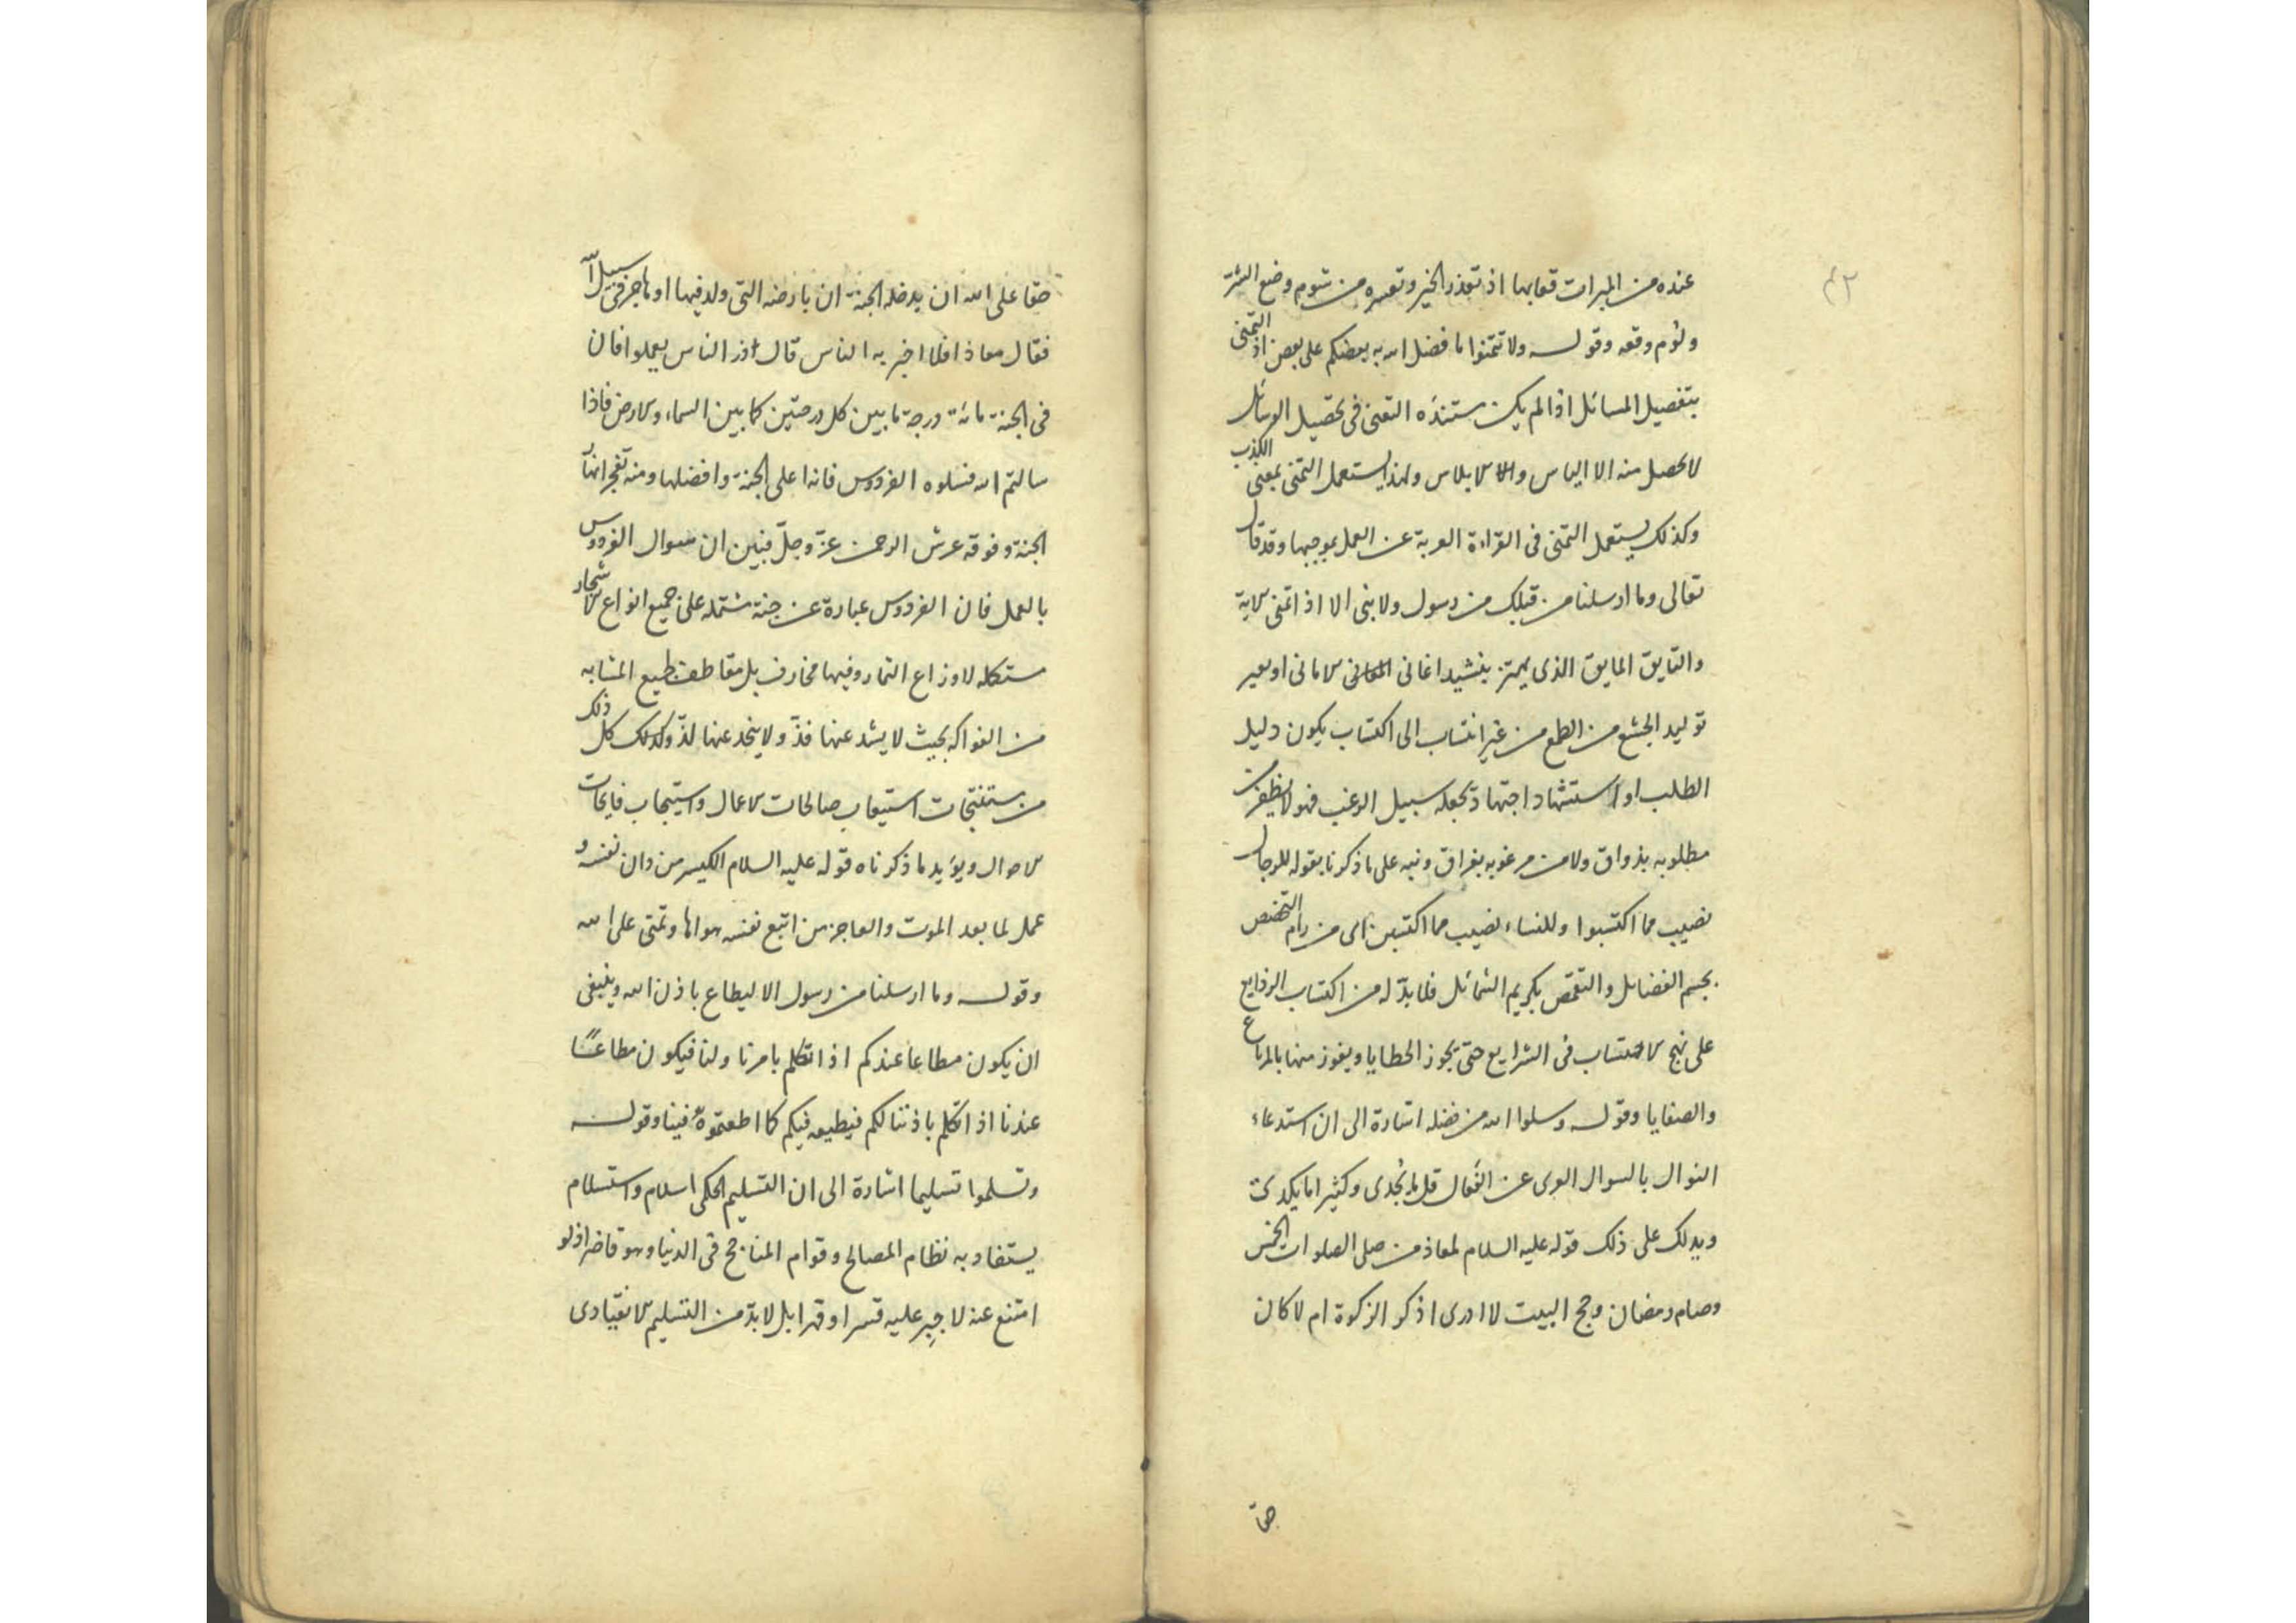 عنده من المبرات قعابها اذ تعذر الخير وتعسره من شوم وضع الشر
ولؤم وقعه وقوله ولا تتمنوا ما فضل الله به بعضكم على بعض اذ التمنى
بتفصيل المسائل اذا لم يكن مستنده التعنى فى تحصيل الوسائل
لا يحصل منه الا الياس والا الابلاس ولهذا يستعمل التمنى بمعنى الكذب
وكذلك يستعمل التمنى فى القراءة العرية عن العمل بموجبها وقد قال
تعالى وما ارسلنا من قبلك من رسول ولا نبى الا اذا تمنى الاية
والتايق المايق الذى يهتز بنشيد اغانى الامانى او يعير
توليد الجشع من الطمع من غير انتساب الى اكتساب يكون دليل
الطلب او استشهاد اجتهاد يجعله سبيل الرغب فهو لا يظفر من
مطلوبه بذواق ولا من مرغوبه بفراق ونبه على ما ذكرنا بقوله للرجال
نصيب مما اكتسبوا وللنساء نصيب مما اكتسبن اى من رام التخصص
بجسم الفضايل والتقمص بكريم الشمائل فلا بد له من اكتساب الرذايع
على نهج الاحتساب فى الشرايع حتى يجوز الخطايا ويفوز منها بالمرباع
والصفايا وقوله وسلوا الله من فضله اشارة الى ان استدعاء
النوال بالسوال العرى عن الفعال قل ما يجدى وكثيرا ما يكدى
ويدلك على ذلك قوله عليه السلام لمعاذ من صلى الصلوات الخمس
وصام رمضان وحج البيت لا ادرى اذكر الزكوة ام لا كان
حقا
حقا على الله ان يدخله الجنة ان بارضه التى ولد فيها او هاجر فى سبيل الله
فقال معاذ افلا اخبر به الناس قال ذر الناس يعملوا فان
فى الجنة مائة درجة ما بين كل درجتين كما بين السماء والارض فاذا
سالتم الله فسلوه الفردوس فانه اعلى الجنة وافضلها ومنه تفجر انهار
الجنة وفوقه عرش الرحمن عزّ وجلّ فبين ان سوال الفردوس
بالعمل فان الفردوس عبارة عن جنة مشتمله على جميع انواع الاشجار
مستكمله لاوزاع الثمار وفيها مخارف بل مقاطف لجميع المشابه
من الفواكه بحيث لا يشد عنها فذّ ولا ينجد عنها لذّ وكذلك كل ذلك
من مستنتجات استيعاب صالحات الاعمال واستيجاب فايحات
الاحوال ويؤيد ما ذكرناه قوله عليه السلام الكيس من دان نفسه و
عمل لما بعد الموت والعاجز من اتبع نفسه هواها وتمنى على الله
وقوله وما ارسلنا من رسول الا ليطاع باذن الله وينبغى
ان يكون مطاعا عندكم اذا تكلم بامرنا ولنا فيكون مطاعًا
عندنا اذا تكلم باذننا لكم فيطيعه فيكم كما اطعتموه فينا وقوله
وتسلموا تسليما اشارة الى ان التسليم الحكمى اسلام واستسلام
يستفاد به نظام المصالح وقوام المناجح فى الدنيا وهو قاصر اذ لو
امتنع عنه لاجبر عليه قسرا وقهرا بل لا بدّ من التسليم الانقيادى